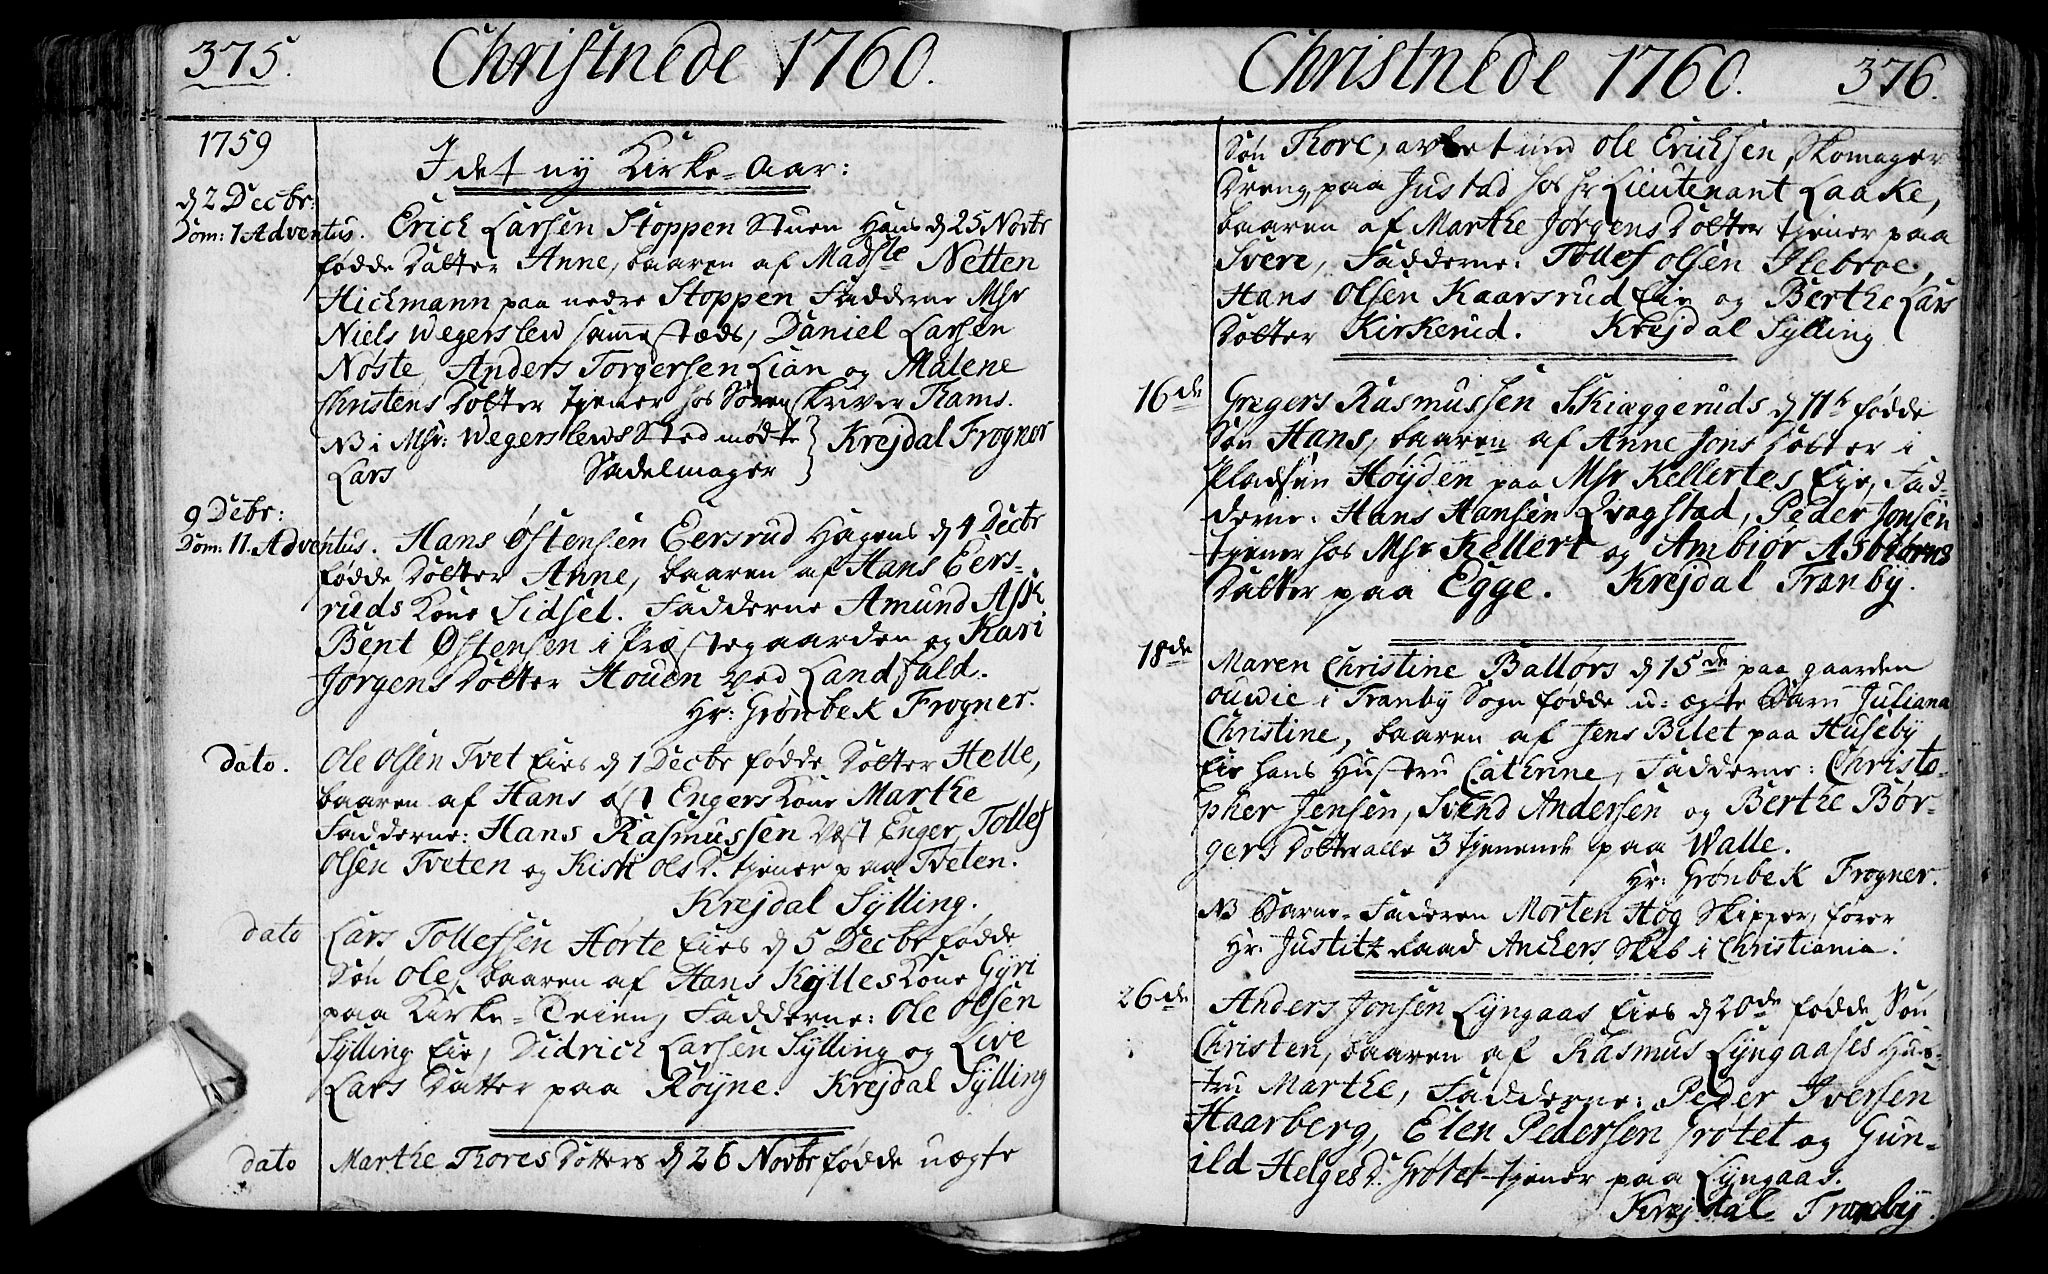 375. Christnede 1760.
1759
I det ny Kirke-Aar:
d 2 Decbr:
Dom: 1 Adventus. Erich Larsen Stoppen Stuen Hans d 25 Novbr
fødde Datter Anne, baaren af Madsle Netten
Hichmann paa nedre Stoppen Fadderne Msr
Niels Wegerslew sammestæds, Daniel Larsen
Nøste, Anders Torgersen Lian og Malene
Christens Datter tjener hos Sorenskriver Rams.
NB i Msr: Wegerslews Sted mødte } Krejdal Frogner
Lars Sadelmager
9 Decbr:
Dom: 11. Adventus. Hans Østensen Eersrud Hagens d 4 Decbr
fødde Datter Anne, baaren af Hans Eers-
ruds Kone Sidsel. Fadderne Amund Ask
Bent Østensen i Præstegaarden og Kari
Jørgens Datter Houen ved Landfald.
Hr: Grønbek Frogner.
Dato. Ole Olsen Tvet Eies d 1 Decbr fødde Datter Helle,
baaren af Hans øst Engers Kone Marthe
Fadderne: Hans Rasmussen Vest Enger, Tollef
Olsen Tveten og Kisti Ols D. tjener paa Tveten.
Krejdal Sylling.
dato Lars Tollefsen Hørte Eies d 5 Decbr fødde
Søn Ole, baaren af Hans Kylles Kone Gyri
paa Kirke-Teien, Fadderne: Ole Olsen
Sylling Eie, Didrich Larsen Sylling og Live
Lars Datter paa Røyne. Krejdal Sylling
dato Marthe Thores Datters d 26 Novbr fødde uægte
Christnede 1760. 376.
Søn Thore, avlet med Ole Erichsen, Skomager
Dreng paa Justad hos Hr Lieutenant Laake,
baaren af Marthe Jørgens Datter tjener paa
Svere, Fadderne: Tollef Olsen Ilebroe,
Hans Olsen Kaarsrud Eie og Berthe Lars
Datter Kirkerud. Krejdal Sylling
16de Gregers Rasmussen Skiæggeruds d 11te fødde
Søn Hans, baaren af Anne Jons Datter i
Pladsen Høyden paa Msr Kellertes Eie, Fad-
derne: Hans Hansen Qvagstad, Peder Jonsen
tjener hos Msr Kellert og Ambiør Asbiørns
Datter paa Egge. Krejdal Tranby.
18de Maren Christine Ballørs d 15de paa gaarden
Ouwie i Tranby Sogn fødde u-ægte Barn Juliana
Christine, baaren af Jens Belet paa Huseby
Eie hans Hustru Cathrine, Fadderne: Christo-
pher Jensen, Svend Andersen og Berthe Bør-
gers Datter alle 3 tjenende paa Walle.
Hr: Grønbek Frogner.
NB Barne-Faderen Morten Høg Skipper, fører
Hr: Justitz Raad Anchers Skib i Christiania.
26de Anders Jonsen Lyngaas Eies d 20de fødde Søn
Christen, baaren af Rasmus Lyngaases Hus-
tru Marthe, Fadderne: Peder Iversen
Haarberg, Elen Pedersen Grøtet og Gun-
ild Helges D. Grøtet tjener paa Lyngaas.
Krejdal Tranby.